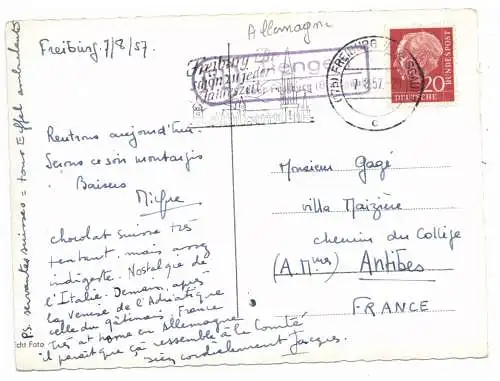 Allemagne
Freiburg 7/8/57.
Freiburg
schön zu jeder
Jahreszeit
FREIBURG
7.8.57
c
20
DEUTSCHE
BUNDESPOST
Rentrons aujourd'hui.
Serons ce soir montargis
Baisers
chocolat Suisse très
tentant, mais assez
indigeste. Nostalgie de
l'Italie. Demain, après
la venise de l'Adriatique
celle du gâtinais, France
Très at home en Allemagne
il paraît que ça ressemble à la Comté
bien cordialement Jacques.
PS. servantes suisses = tours Eiffel ambulantes
Monsieur Gagé
villa Maizière
chemin du Collège
(A. Mmes) Antibes
FRANCE
cht Foto